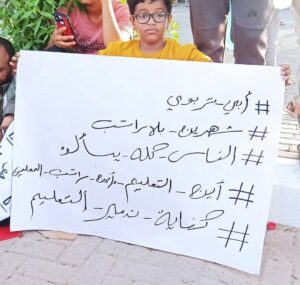 # أبي - تربوي
# شهرين - بلا راتب
# الناس - كله - يسألوا
# أين - التعليم - وأين - راتب - المعلمين
# كفاية - تدمير - التعليم